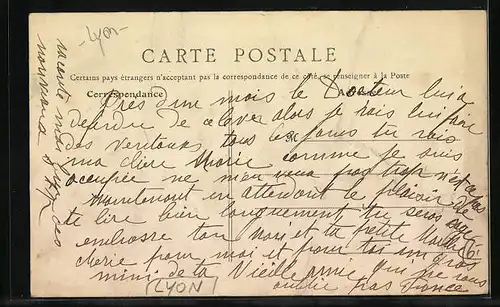 Lyon
CARTE POSTALE
Certains pays étrangers n'acceptant pas la correspondance de ce côté, se renseigner à la Poste
Correspondance
Près d'un mois le Docteur lui a
de de alors je vais lui faire
des ventouses tous les jours tu vois
M
ma chère Marie comme je suis
occupée ne m'en veux pas trop n'est ce pas
maintenant en attendant le plaisir de
te lire bien longuement tu seras
embrasse ton Mari et ta petite
chérie pour moi et pour toi un gros
mimi de la Vieille amie qui ne vous
oublie pas France
LYON
6
raconte moi des
nouveaux